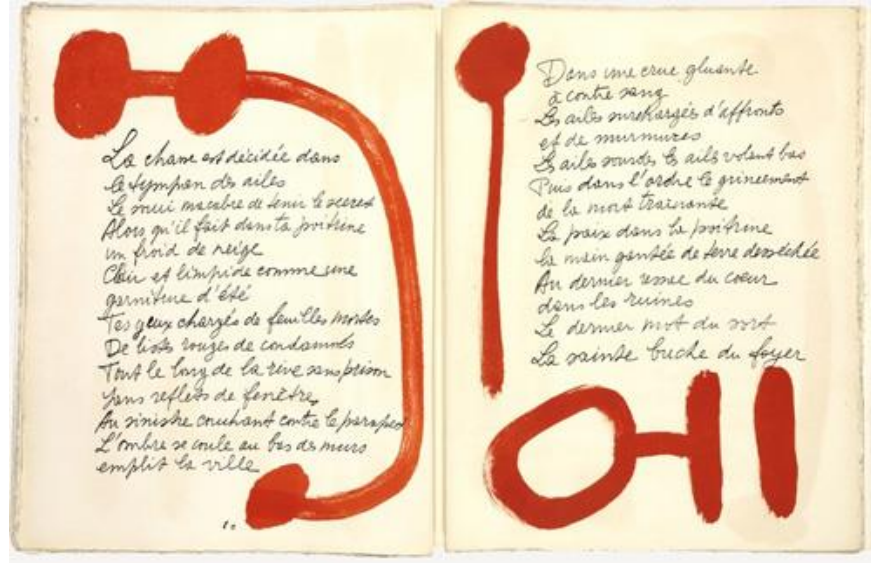 La chance est décidée dans
le tympan des ailes
Le souci macabre de tenir le secret
Alors qu'il fait dans ta poitrine
un froid de neige
Clair et limpide comme une
garniture d'été
Tes yeux chargés de feuilles mortes
De listes rouges de condamnés
Tout le long de la rive sans prison
sans reflets de fenêtres
Au sinistre couchant contre le parapet
L'ombre se coule au bas des murs
emplit la ville
Dans une crue gluante
à contre sang
Les ailes surchargées d'affronts
et de murmures
Les ailes sourdes les ailes volent bas
Puis dans l'ordre le grincement
de la mort traçante
La paix dans la poitrine
la main gantée de terre desséchée
Au dernier ressac du cœur
dans les ruines
Le dernier mot du sort
La sainte buche du foyer